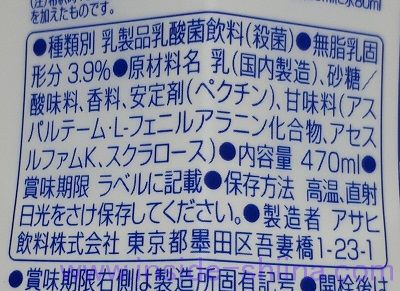 を加えたものです。
水80ml
●種類別 乳製品乳酸菌飲料(殺菌)●無脂乳固
形分 3.9%●原材料名 乳(国内製造)、砂糖/
酸味料、香料、安定剤(ペクチン)、甘味料(アス
パルテーム・L-フェニルアラニン化合物、アセス
ルファムK、スクラロース)●内容量 470ml●
賞味期限 ラベルに記載●保存方法 高温、直射
日光をさけ保存してください。●製造者 アサヒ
飲料株式会社 東京都墨田区吾妻橋1-23-1
●賞味期限右側は製造所固有記号 ●開栓後は